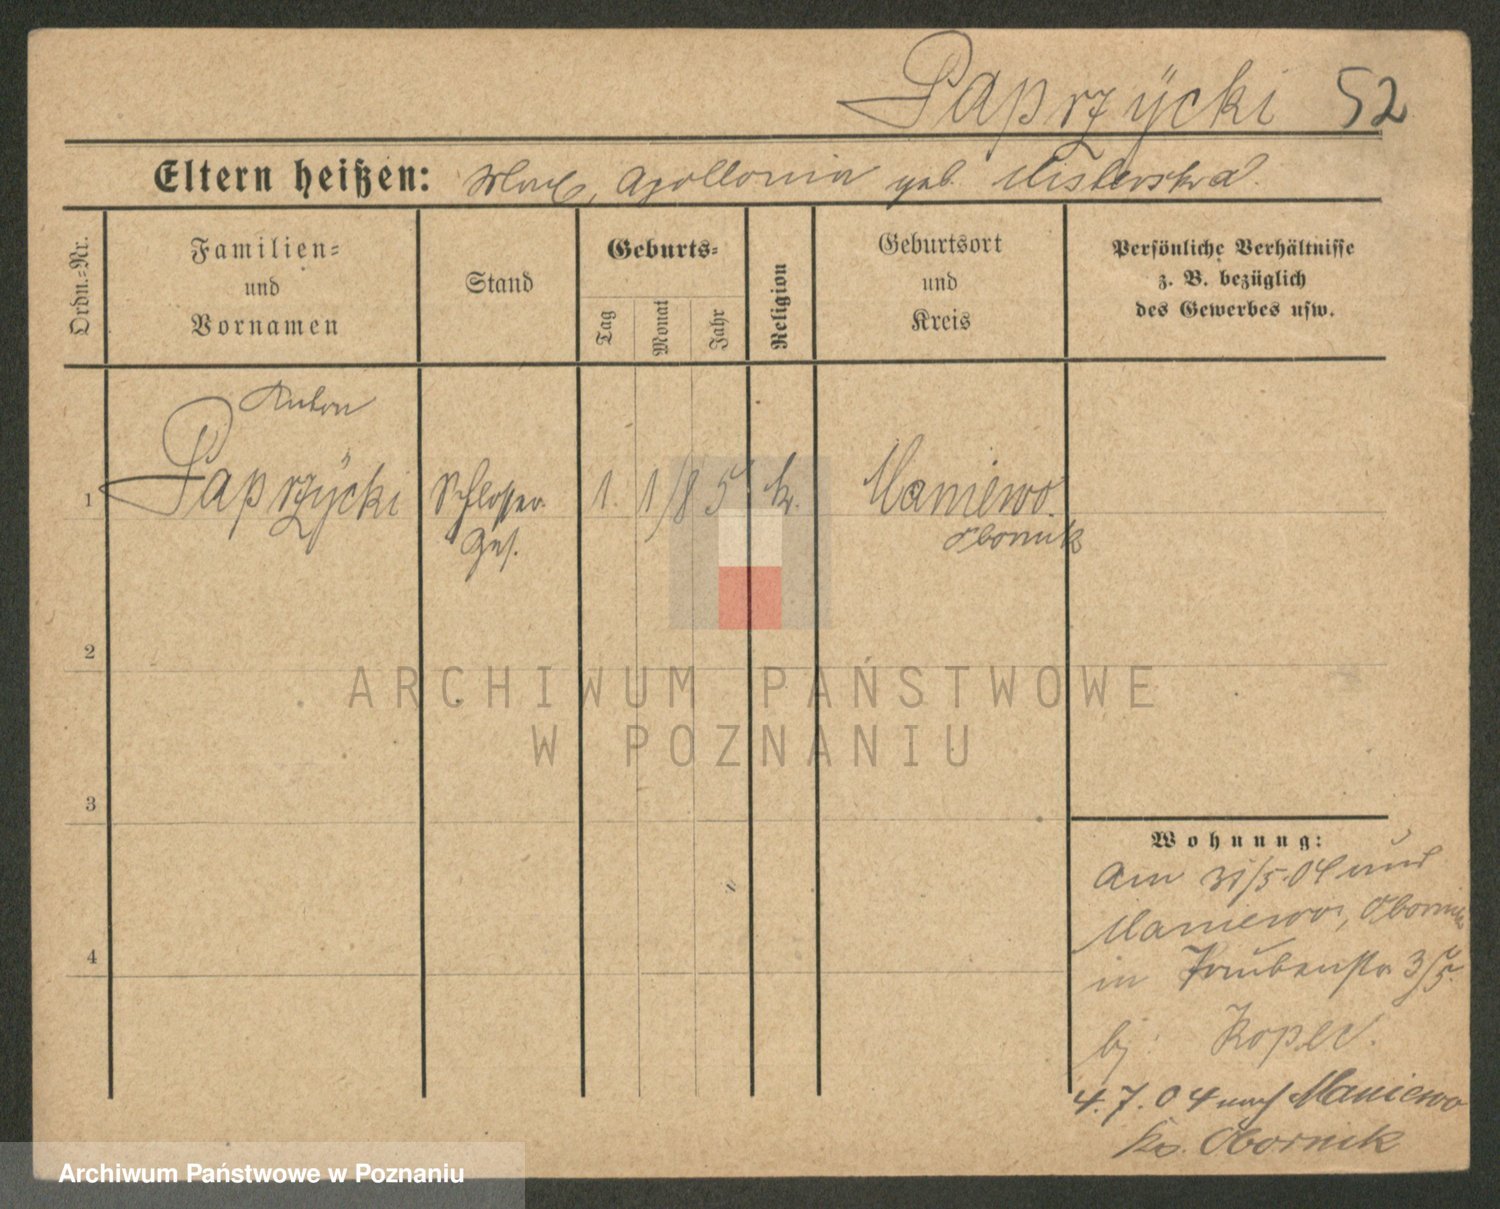 Paprzÿcki 52
Eltern heißen: Apollonia geb. Misterska
Ordn.=Nr.
Familien=
und
Vornamen
Stand
Geburts=
Tag
Monat
Jahr
Religion
Geburtsort
und
Kreis
Persönliche Verhältnisse
z. B. bezüglich
des Gewerbes usw.
Anton
1 Paprzÿcki Schlosser 1. 1/85 k. Maniewo.
Ges. Obornik
2
3
4
Wohnung:
Am 31/5.04 aus
Maniewo, Obornik
in 3/5.
bj: Kopec.
4.7.04 nach Maniewo
Krs. Obornik
ARCHIWUM PAŃSTWOWE
W POZNANIU
Archiwum Państwowe w Poznaniu